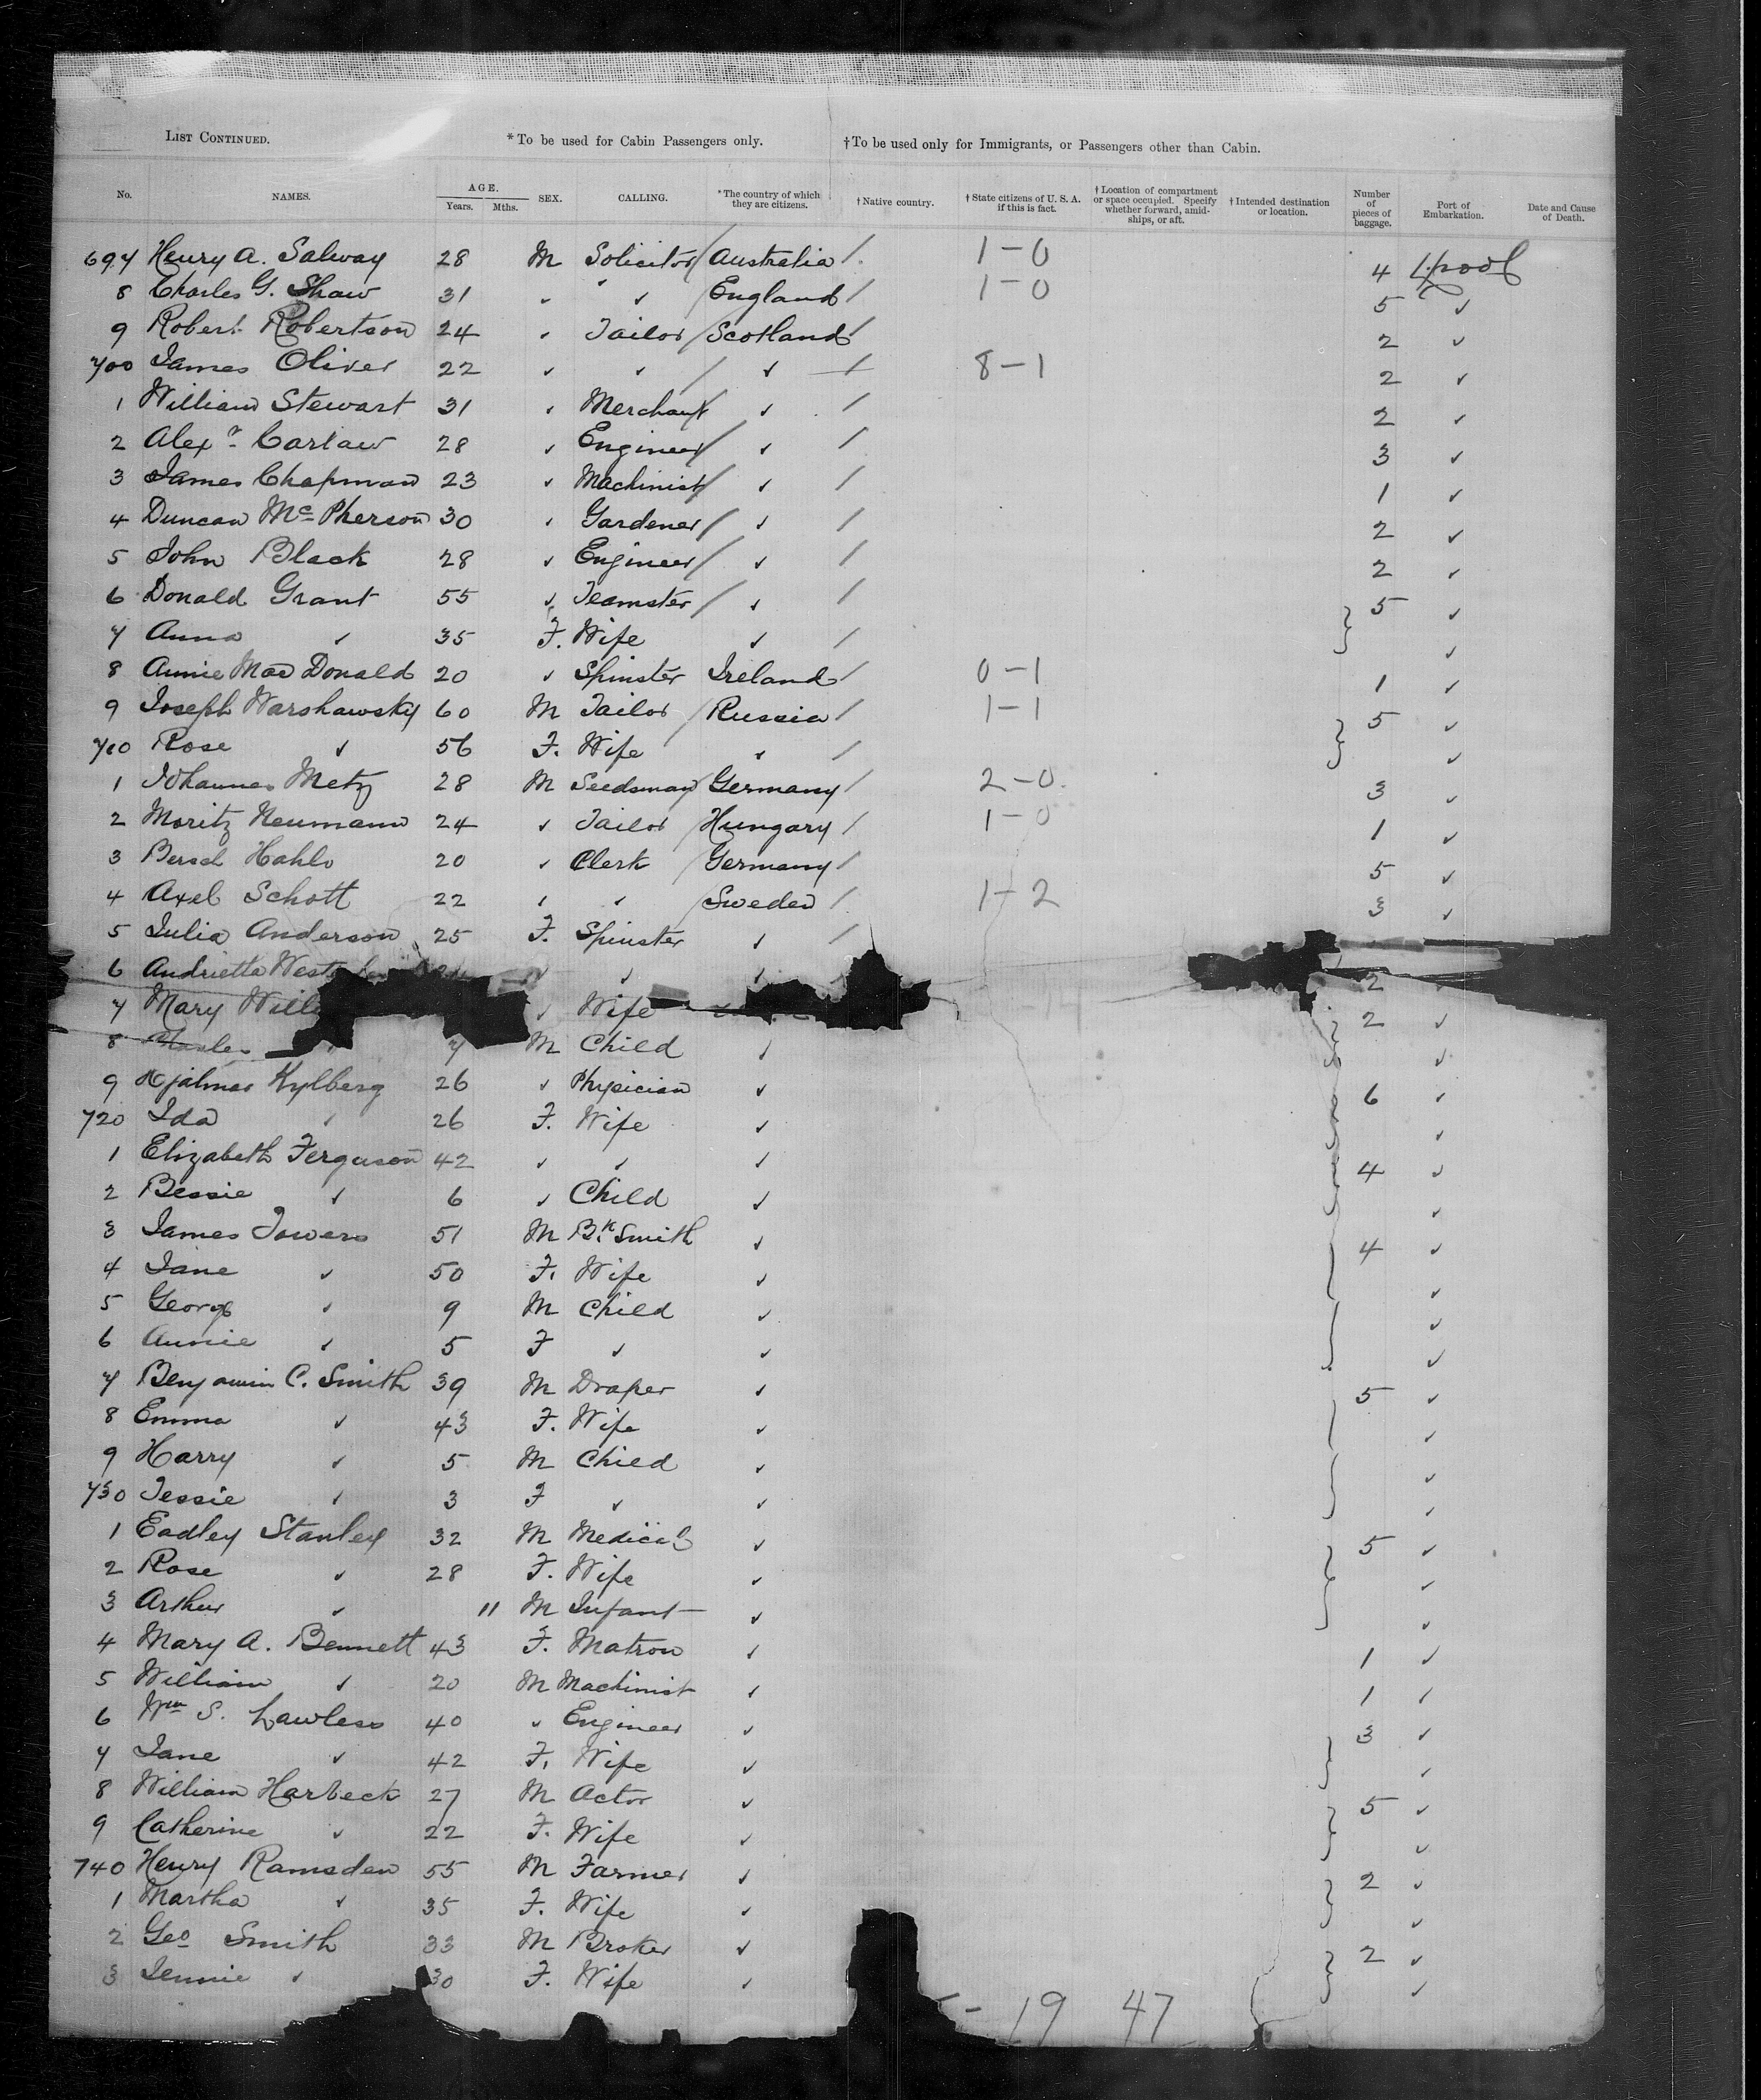 LIST CONTINUED. *To be used for Cabin Passengers only. †To be used only for Immigrants, or Passengers other than Cabin.
No. NAMES. AGE. Years. Mths. SEX. CALLING. *The country of which they are citizens. †Native country. †State citizens of U. S. A. if this is fact. †Location of compartment or space occupied. Specify whether forward, amidships, or aft. †Intended destination or location. Number of pieces of baggage. Port of Embarkation. Date and Cause of Death.
697 Henry A. Salway 28 M Solicitor / Australia / 1-0 4 L'pool
8 Charles G. Shaw 31 " " ✓ / England / 1-0 5 ✓
9 Robert Robertson 24 " Tailor / Scotland / 2 ✓
700 James Oliver 22 ✓ ✓ / ✓ / 8-1 2 ✓
1 William Stewart 31 ✓ Merchant / ✓ / 2 ✓
2 Alexr Carlaw 28 ✓ Engineer / ✓ / 3 ✓
3 James Chapman 23 ✓ Machinist / ✓ / 1 ✓
4 Duncan McPherson 30 ✓ Gardener / ✓ / 2 ✓
5 John Black 28 ✓ Engineer / ✓ / 2 ✓
6 Donald Grant 55 ✓ Teamster / ✓ / 5 ✓
7 Anna ✓ 35 F. Wife ✓ / ✓
8 Annie Mac Donald 20 ✓ Spinster Ireland / 0-1 1 ✓
9 Joseph Warshawsky 60 M Tailor / Russia / 1-1 5 ✓
710 Rose ✓ 56 F. Wife ✓ / ✓
1 Johannes Metz 28 M Seedsman / Germany / 2-0 3 ✓
2 Moritz Neumann 24 ✓ Tailor / Hungary / 1-0 1 ✓
3 Hahlo 20 ✓ Clerk / Germany / 5 ✓
4 Axel Schott 22 ✓ ✓ / Sweden / 1-2 3 ✓
5 Julia Anderson 25 F. Spinster ✓ /
6 Andrietta ✓ ✓ ✓ 2
7 Mary ✓ Wife 2 ✓
8 7 M Child ✓ ✓
9 Hjalmar Kylberg 26 ✓ Physician ✓ 6 ✓
720 Ida ✓ 26 F. Wife ✓ ✓
1 Elizabeth Ferguson 42 ✓ ✓ ✓ 4 ✓
2 Bessie ✓ 6 ✓ Child ✓ ✓
3 James Towers 51 M Bk. Smith ✓ 4 ✓
4 Jane ✓ 50 F. Wife ✓ ✓
5 George ✓ 9 M Child ✓ ✓
6 Annie ✓ 5 F ✓ ✓ ✓
7 Benjamin C. Smith 39 M Draper ✓ 5 ✓
8 Emma ✓ 43 F. Wife ✓ ✓
9 Harry ✓ 5 M Child ✓ ✓
730 Jessie ✓ 3 F ✓ ✓ ✓
1 Eadley Stanley 32 M Medical ✓ 5 ✓
2 Rose ✓ 28 F. Wife ✓ ✓
3 Arthur ✓ 11 M Infant ✓ ✓
4 Mary A. Bennett 43 F. Matron ✓ 1 ✓
5 William ✓ 20 M Machinist ✓ 1 ✓
6 Wm S. Lawless 40 ✓ Engineer ✓ 3 ✓
7 Jane ✓ 42 F. Wife ✓ ✓
8 William Harbeck 27 M Actor ✓ 5 ✓
9 Catherine ✓ 22 F. Wife ✓ ✓
740 Henry Ramsden 55 M Farmer ✓ 2 ✓
1 Martha ✓ 35 F. Wife ✓ ✓
2 Geo Smith 33 M Broker ✓ 2 ✓
3 Jennie ✓ 30 F. Wife ✓ ✓
19 47